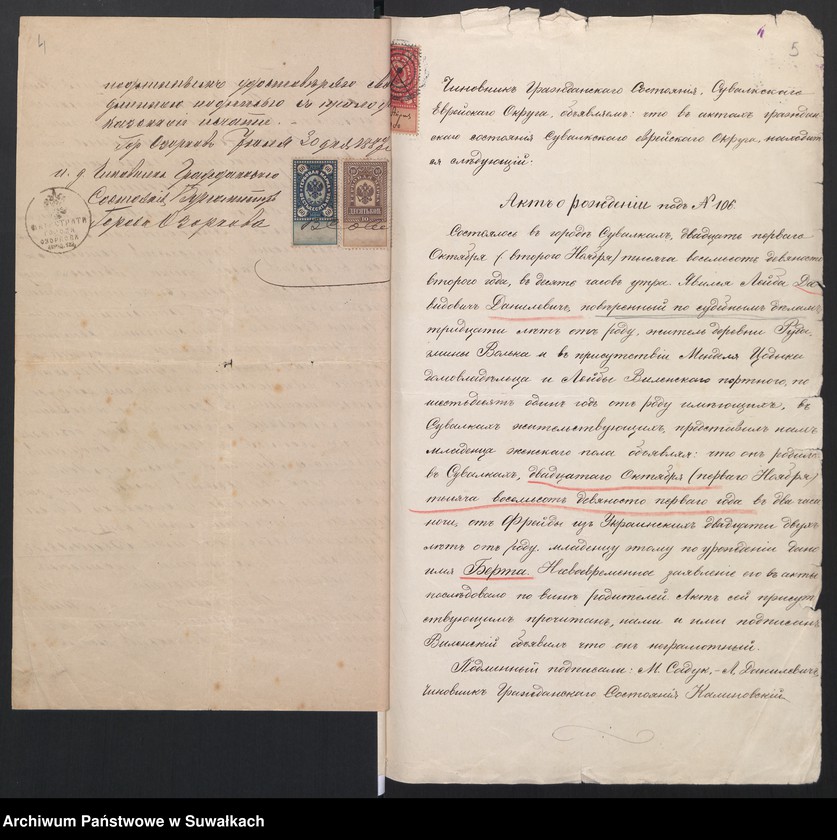 4
подписью и приложениемъ
казенной печати.
Гор. Озорковъ
и. д. Чиновника Гражданскаго
Состоянія, Бургомистръ
Города Озоркова
ДЕСЯТЬ КОП.
5
Чиновникъ Гражданскаго Состоянія, Сувалкскаго
Еврейскаго Округа, объявляемъ: что въ актахъ граждан
скаго состоянія Сувалкскаго еврейскаго Округа, находит
ся слѣдующій:
Актъ о рожденіи подъ № 106.
Состоялось въ городѣ Сувалкахъ, двадцать перваго
Октября (втораго Ноября) тысяча восемьсотъ девяносто
втораго года, въ десять часовъ утра. Явился Лейба Да
видовичъ Данилевичъ, повѣренный по судебнымъ дѣламъ,
тридцати лѣтъ отъ роду, житель деревни
Волька и въ присутствіи Цодыка
домовладѣльца и Лейбы Виленскаго портного, по
шестьдесятъ одинъ годъ отъ роду имѣющихъ, въ
Сувалкахъ жительствующихъ, предъставилъ намъ
младенца женскаго пола объявляя: что онъ родился
въ Сувалкахъ, двадцатаго Октября (перваго Ноября)
тысяча восемьсотъ девяносто перваго года въ два часа
ночи, отъ Фрейды изъ Украинскихъ двадцати двухъ
лѣтъ отъ роду. младенцу этому по урожденіи дано
имя Берта. Несвоевременное заявленіе его въ акты
послѣдовало по винѣ родителей. Актъ сей присут
ствующимъ прочитанъ, нами и ими подписанъ
Виленскій объявилъ что онъ неграмотный.
Подлинный подписали: М. Садук, - Л. Данилевичъ,
Чиновникъ Гражданскаго Состоянія Калиновскій
Archiwum Państwowe w Suwałkach